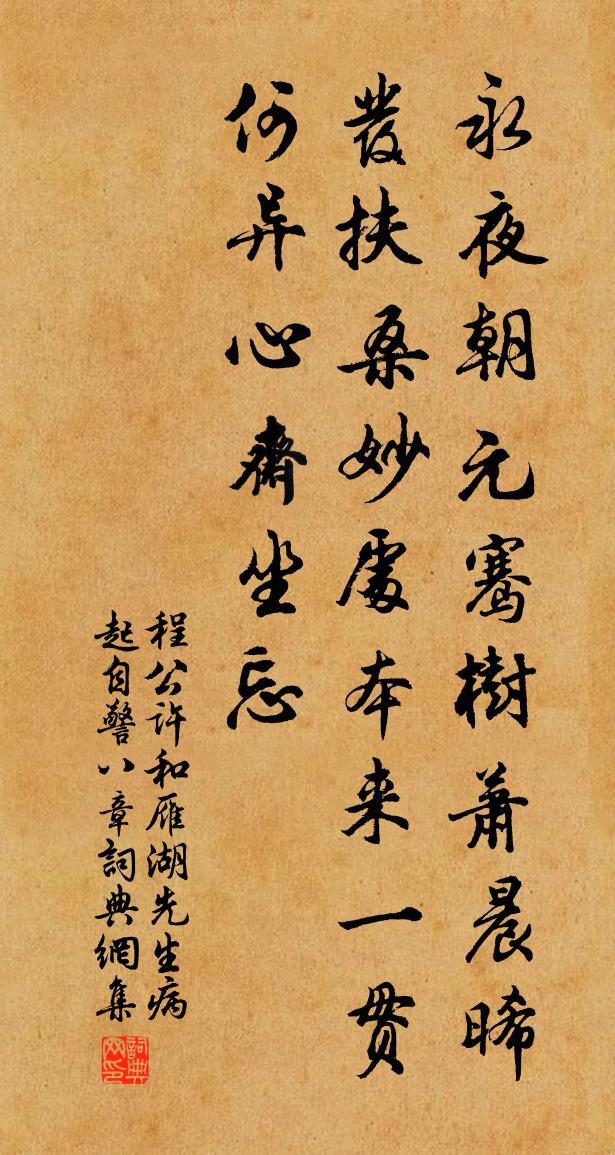 永夜朝元騫樹蕭晨晞
發扶桑妙處本来一贯
何异心齋坐忘
程公許和雁湖先生病
起自警八章詞典網集
詞典网印